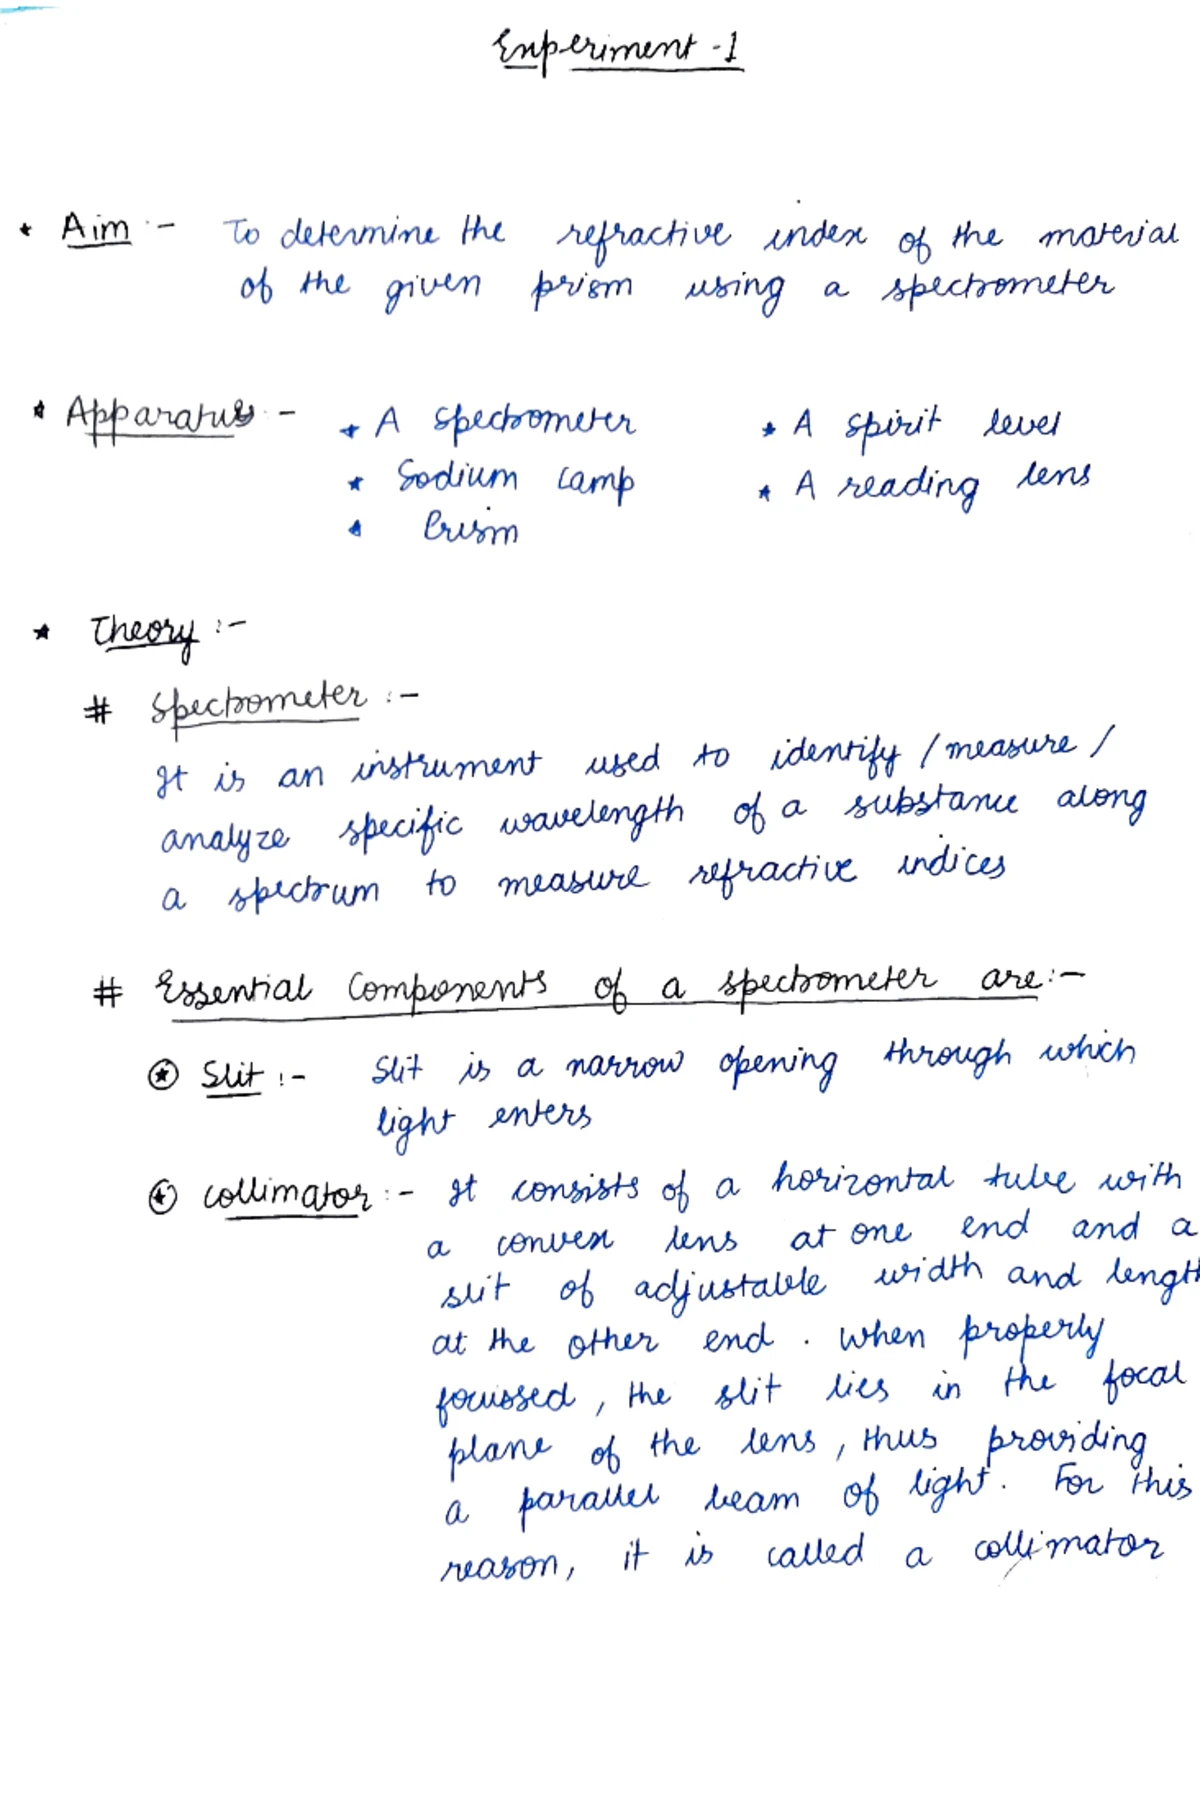 Experiment - 1
* Aim :- To determine the refractive index of the material
of the given prism using a spectrometer
* Apparatus :- * A spectrometer * A spirit level
* Sodium Lamp * A reading lens
* Prism
* Theory :-
# Spectrometer :-
It is an instrument used to identify / measure /
analyze specific wavelength of a substance along
a spectrum to measure refractive indices
# Essential Components of a spectrometer are :-
* Slit :- Slit is a narrow opening through which
light enters
* Collimator :- It consists of a horizontal tube with
a convex lens at one end and a
slit of adjustable width and length
at the other end . When properly
focussed , the slit lies in the focal
plane of the lens , thus providing
a parallel beam of light . For this
reason , it is called a collimator